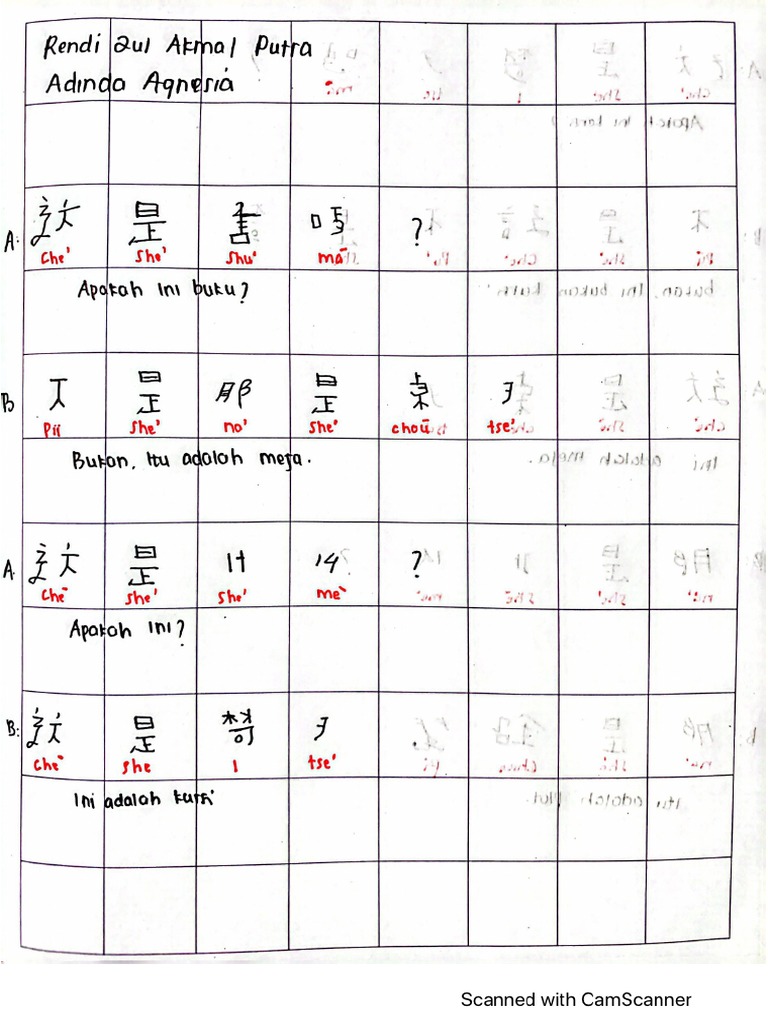 Rendi Zul Akmal Putra
Adinda Agnesia
A: 這 是 書 嗎 ?
che' she' shu' mā
Apakah ini buku?
B 不 是 那 是 桌 子
pii she' na' she' choū tse'
Bukan, itu adalah meja.
A. 這 是 什 麼 ?
chē she' she' me`
Apakah ini?
B: 這 是 椅 子
chē she I tse'
Ini adalah kursi
Scanned with CamScanner